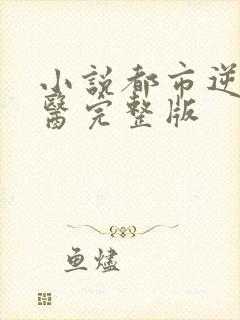 小説都市逆
醫完整版
鱼燼